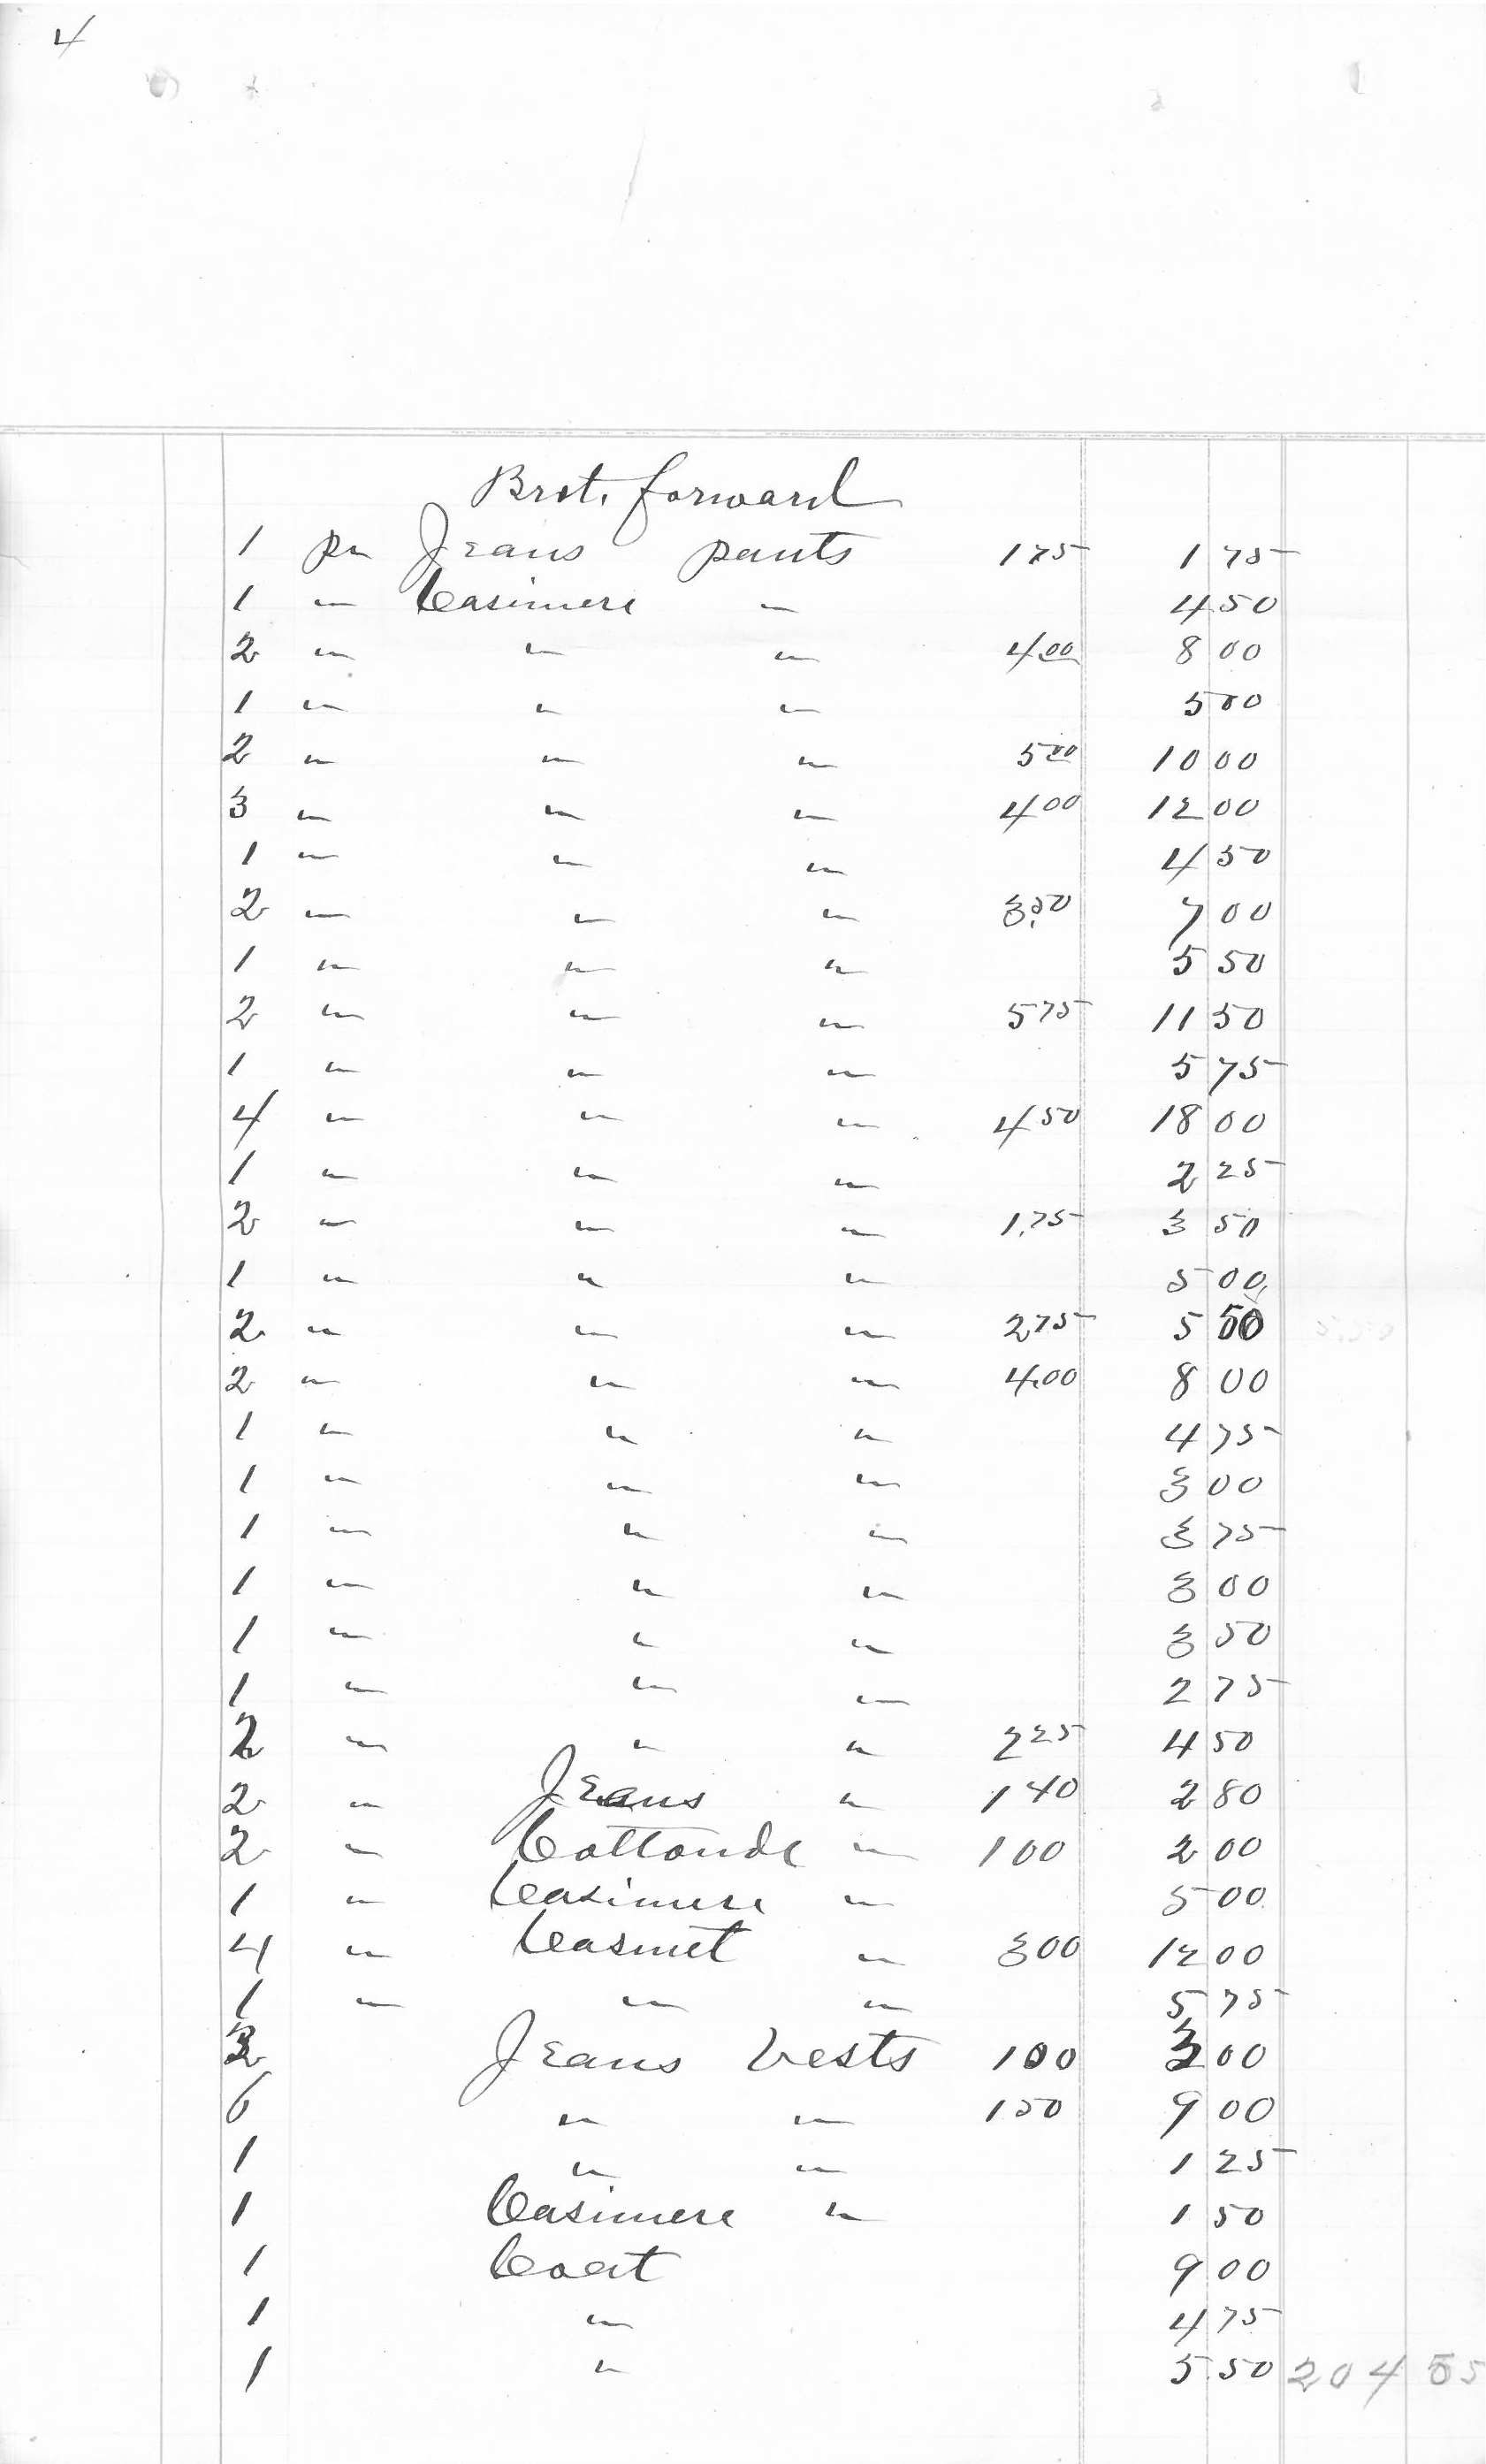 4
Brot. forward
1 pr Jeans pants 175 1 75
1 " Casimere " 4 50
2 " " " 4.00 8 00
1 " " " 5 00
2 " " " 500 10 00
3 " " " 400 12 00
1 " " " 4 50
2 " " " 3.50 7 00
1 " " " 5 50
2 " " " 575 11 50
1 " " " 5 75
4 " " " 450 18 00
1 " " " 2 25
2 " " " 1.75 3 50
1 " " " 5 00
2 " " " 275 5 50
2 " " " 4.00 8 00
1 " " " 4 75
1 " " " 3 00
1 " " " 3 75
1 " " " 3 00
1 " " " 3 50
1 " " " 2 75
2 " " " 225 4 50
2 " Jeans " 140 2 80
2 " Cottonde " 100 2 00
1 " Casimere " 5 00
4 " Casmet " 300 12 00
1 " " " 5 75
3 Jeans Vests 100 3 00
6 " " 150 9 00
1 " " 1 25
1 Casimere " 1 50
1 Coat 9 00
1 " 4 75
1 " 5 50 204 55